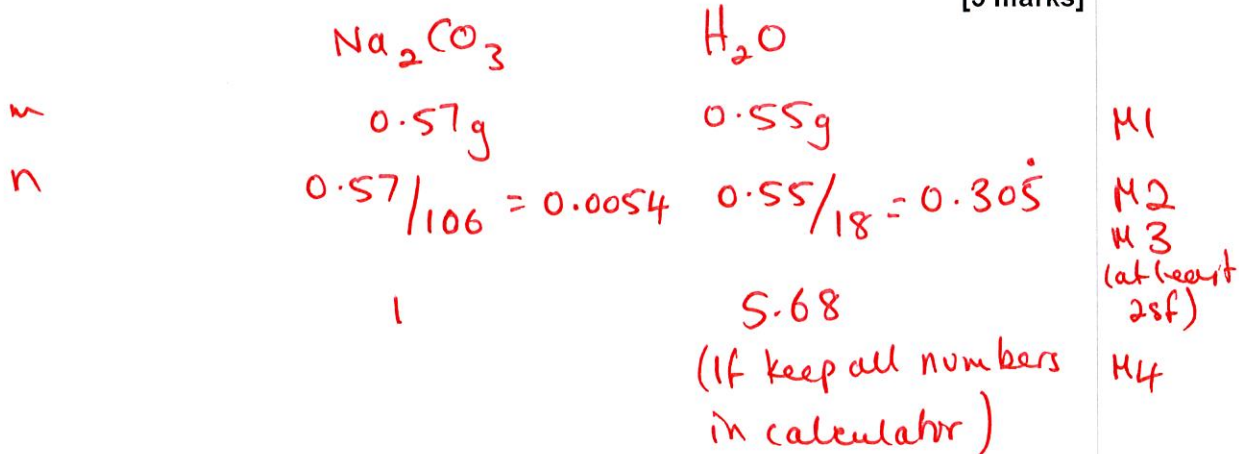 [5 marks]
Na₂CO₃ H₂O
m 0.57g 0.55g M1
n 0.57/106 = 0.0054 0.55/18 = 0.305̇ M2
M3
(at least
2sf)
1 5.68
(If keep all numbers M4
in calculator)